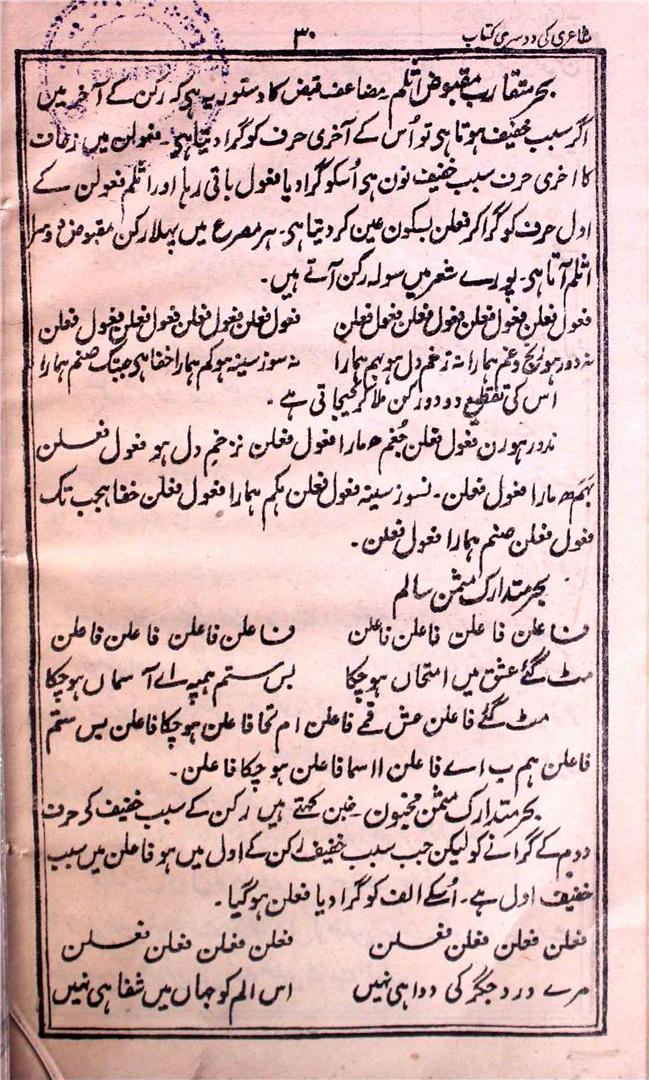 شاعری کی دوسری کتاب
۳۰
بحر متقارب مقبوض اثلم ۔ مضاعف قبض کا دستور یہ ہی کہ رکن کے آخر میں
اگر سبب خفیف ہوتا ہی تو اُس کے آخری حرف کو گرا دیتا ہی۔ فعولن میں زحاف
کا اخری حرف سبب خفیف نون ہی اُسکو گرا دیا فعول باقی رہا اور اثلم فعولن کے
اول حرف کو گرا کر فعلن بسکون عین کر دیتا ہی۔ ہر مصرع میں پہلا رکن مقبوض دوسرا
اثلم آتا ہی۔ پورے شعر میں سولہ رکن آتے ہیں۔
فعول فعلن فعول فعلن فعول فعلن فعول فعلن فعول فعلن فعول فعلن فعول فعلن فعول فعلن
نہ دور ہو رنج و غم ہمارا نہ زخم دل ہو بہم ہمارا نہ سوز سینہ ہو کم ہمارا خفا ہی جبتک صنم ہمارا
اس کی تقطیع دو دو رکن ملا کر کیجاتی ہے ۔
ندور ہو رن فعول فعلن جُغم ھمارا فعول فعلن نزخمِ دل ہو فعول فعلن
بہَم ھمارا فعول فعلن۔ نسوز سینہ فعول فعلن ہکم ہمارا فعول فعلن خفا ہجب تک
فعول فعلن صنم ہمارا فعول فعلن۔
بحر متدارک مثمن سالم
فاعلن فاعلن فاعلن فاعلن فاعلن فاعلن فاعلن فاعلن
مٹ گئے عشق میں امتحاں ہو چکا بس ستم ہمپہ اے آسماں ہو چکا
مٹ گئے فاعلن عش ق مے فاعلن ام تحا فاعلن ہو چکا فاعلن بس ستم
فاعلن ہم پ اے فاعلن ااسما فاعلن ہو چکا فاعلن۔
بحر متدارک مثمن مخبون ۔ خبن کہتے ہیں رکن کے سبب خفیف کی حرف
دوم کے گرانے کو لیکن جب سبب خفیف رکن کے اول میں ہو فاعلن میں سبب
خفیف اول ہے۔ اُسکے الف کو گرا دیا فعلن ہو گیا۔
فعلن فعلن فعلن فعلن فعلن فعلن فعلن فعلن
مرے درد جگر کی دوا ہی نہیں اس الم کو جہاں میں شفا ہی نہیں